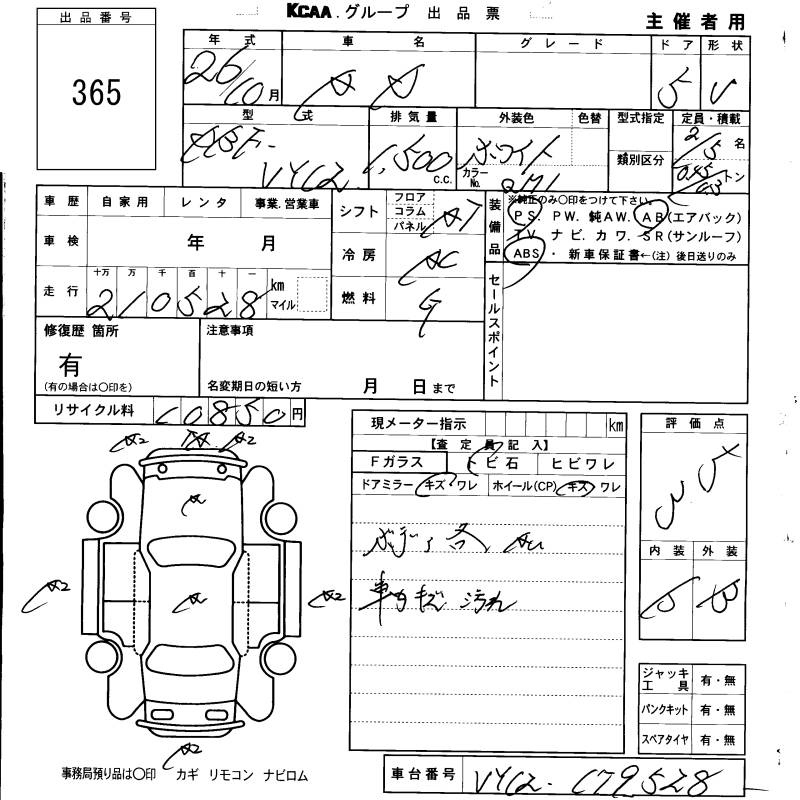 KCAA グループ 出品票
主催者用
出品番号
365
年式 車名 グレード ドア 形状
26/10月 AD 5 V
型式 排気量 外装色 色替 型式指定 定員・積載
類別区分
DBF-VY12 1,500 c.c. ホワイト カラーNo. QM1 2/5名
トン
車歴 自家用 レンタ 事業.営業車
車検 年 月
走行 十万 万 千 百 十 一
210528 km マイル
シフト フロア コラム パネル AT
冷房 AC
燃料 G
装備品
※純正のみ〇印をつけて下さい。
PS. PW. 純AW. AB(エアバック)
TV. ナビ. カワ. SR(サンルーフ)
ABS・新車保証書←(注) 後日送りのみ
セールスポイント
修復歴 箇所
有
(有の場合は〇印を)
注意事項
名変期日の短い方 月 日まで
リサイクル料 10850円
現メーター指示 km
【査定員記入】
Fガラス トビ石 ヒビワレ
ドアミラー キズ ワレ ホイール(CP) キズ ワレ
ボディ各 AU
車内キズ 汚れ
評価点
3.5
内装 外装
B
ジャッキ工具 有・無
パンクキット 有・無
スペアタイヤ 有・無
A2 A2
A
A2 A A2
A2
事務局預り品は〇印 カギ リモコン ナビロム
車台番号 VY12-179528